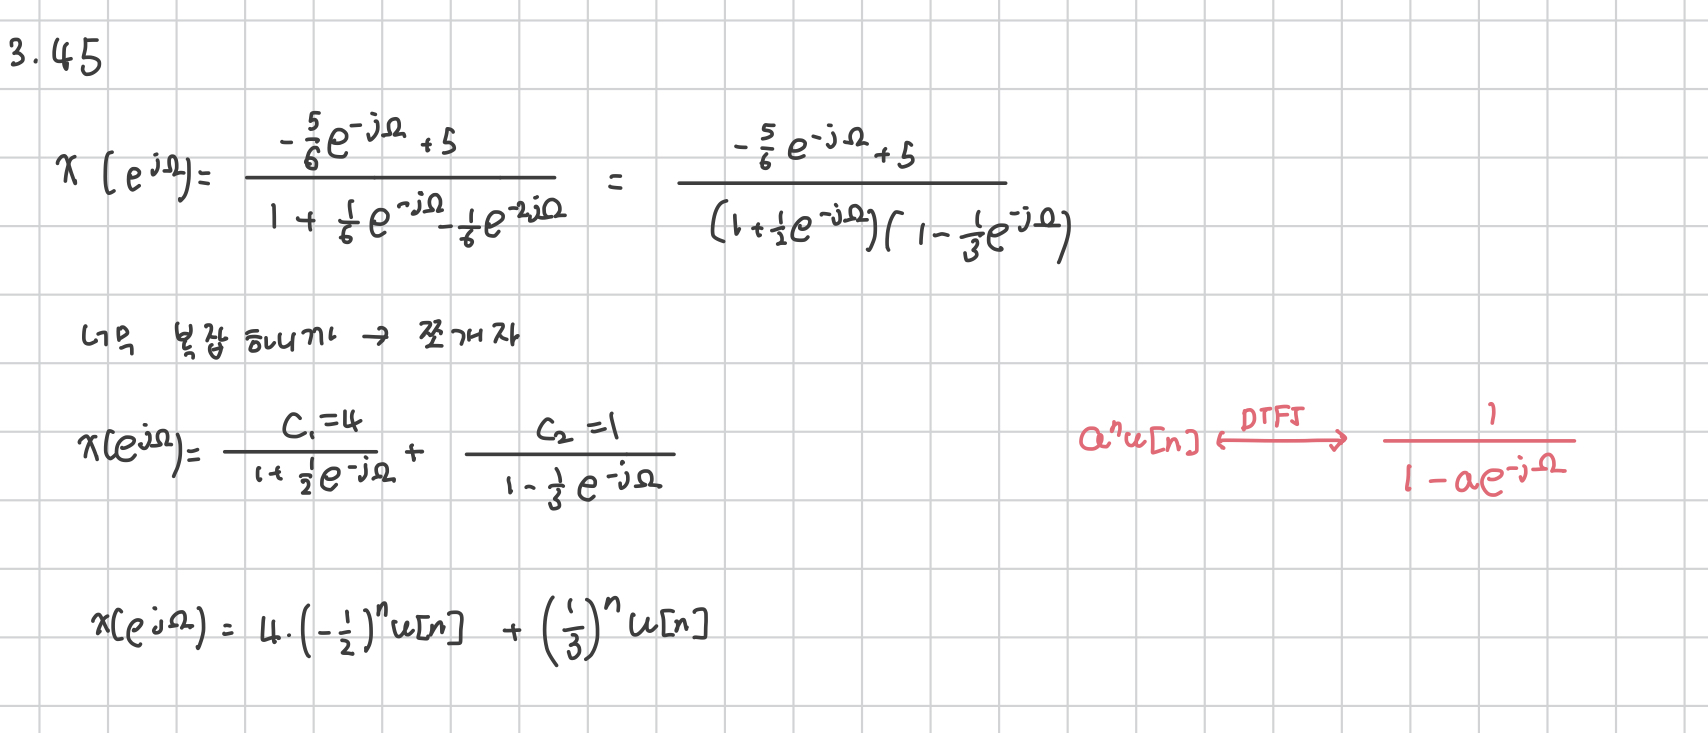 3.45
x(e^{jΩ}) = \frac{-\frac{5}{6}e^{-jΩ}+5}{1+\frac{1}{6}e^{-jΩ}-\frac{1}{6}e^{-2jΩ}} = \frac{-\frac{5}{6}e^{-jΩ}+5}{(1+\frac{1}{2}e^{-jΩ})(1-\frac{1}{3}e^{-jΩ})}
너무 복잡하니까 → 쪼개자
x(e^{jΩ}) = \frac{C_1=4}{1+\frac{1}{2}e^{-jΩ}} + \frac{C_2=1}{1-\frac{1}{3}e^{-jΩ}}
a^n u[n] \overset{DTFT}{↔} \frac{1}{1-ae^{-jΩ}}
x(e^{jΩ}) = 4·(-\frac{1}{2})^n u[n] + (\frac{1}{3})^n u[n]